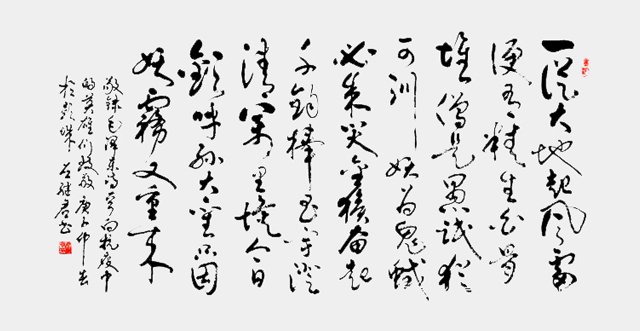 一從大地起风雷
便有精生白骨
堆僧是愚氓犹
可训妖为鬼蜮
必成灾金猴奋起
千钧棒玉宇澄
清万里埃今日
欢呼孙大圣只因
妖雾又重来
敬录毛泽东诗词向抗疫中
的英雄们致敬庚子仲春
书